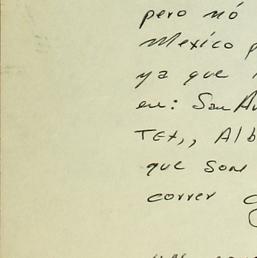 pero nó
Mexico p
ya que
en: San A
TEX,, Alb
que son
correr